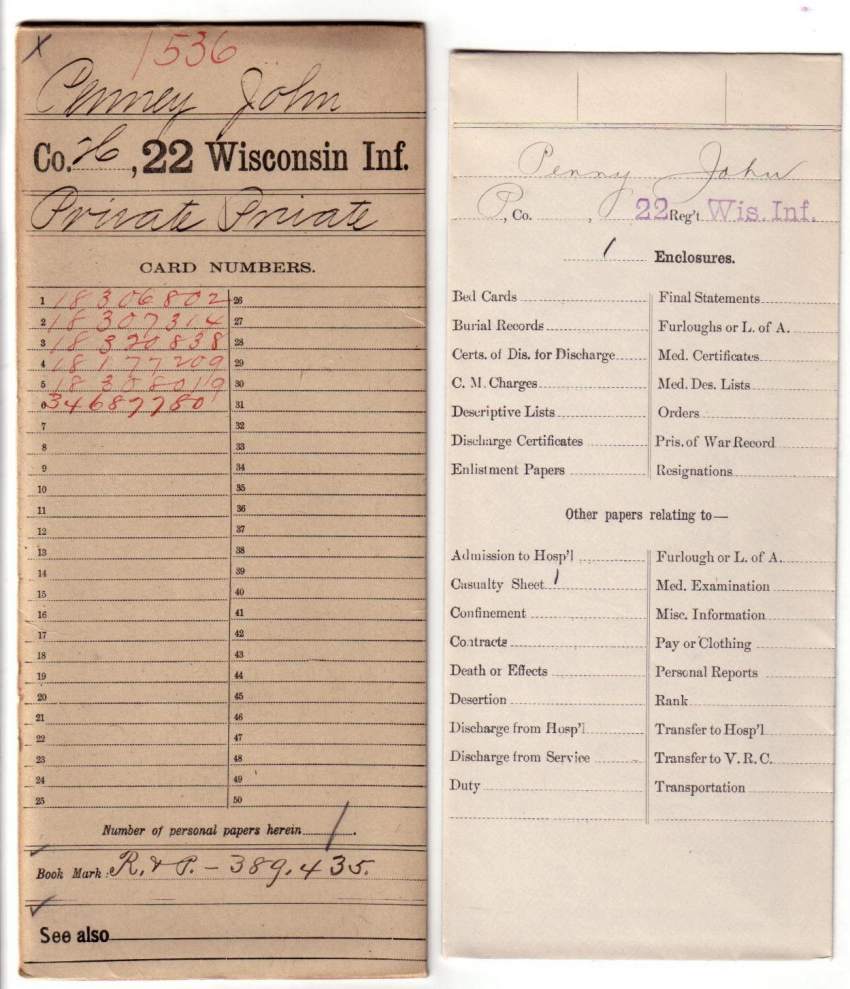 X
1536
Penney John
Co. H, 22 Wisconsin Inf.
Private Private
CARD NUMBERS.
1 18306802 26
2 18307314 27
3 18320838 28
4 18177209 29
5 18308019 30
6 34687780 31
7 32
8 33
9 34
10 35
11 36
12 37
13 38
14 39
15 40
16 41
17 42
18 43
19 44
20 45
21 46
22 47
23 48
24 49
25 50
Number of personal papers herein 1.
Book Mark: R. & P. – 389,435.
See also
Penny John
P, Co. , 22 Reg't Wis. Inf.
1 Enclosures.
Bed Cards Final Statements
Burial Records Furloughs or L. of A.
Certs. of Dis. for Discharge Med. Certificates
C. M. Charges Med. Des. Lists
Descriptive Lists Orders
Discharge Certificates Pris. of War Record
Enlistment Papers Resignations
Other papers relating to—
Admission to Hosp'l Furlough or L. of A.
Casualty Sheet 1 Med. Examination
Confinement Misc. Information
Contracts Pay or Clothing
Death or Effects Personal Reports
Desertion Rank
Discharge from Hosp'l Transfer to Hosp'l
Discharge from Service Transfer to V. R. C.
Duty Transportation